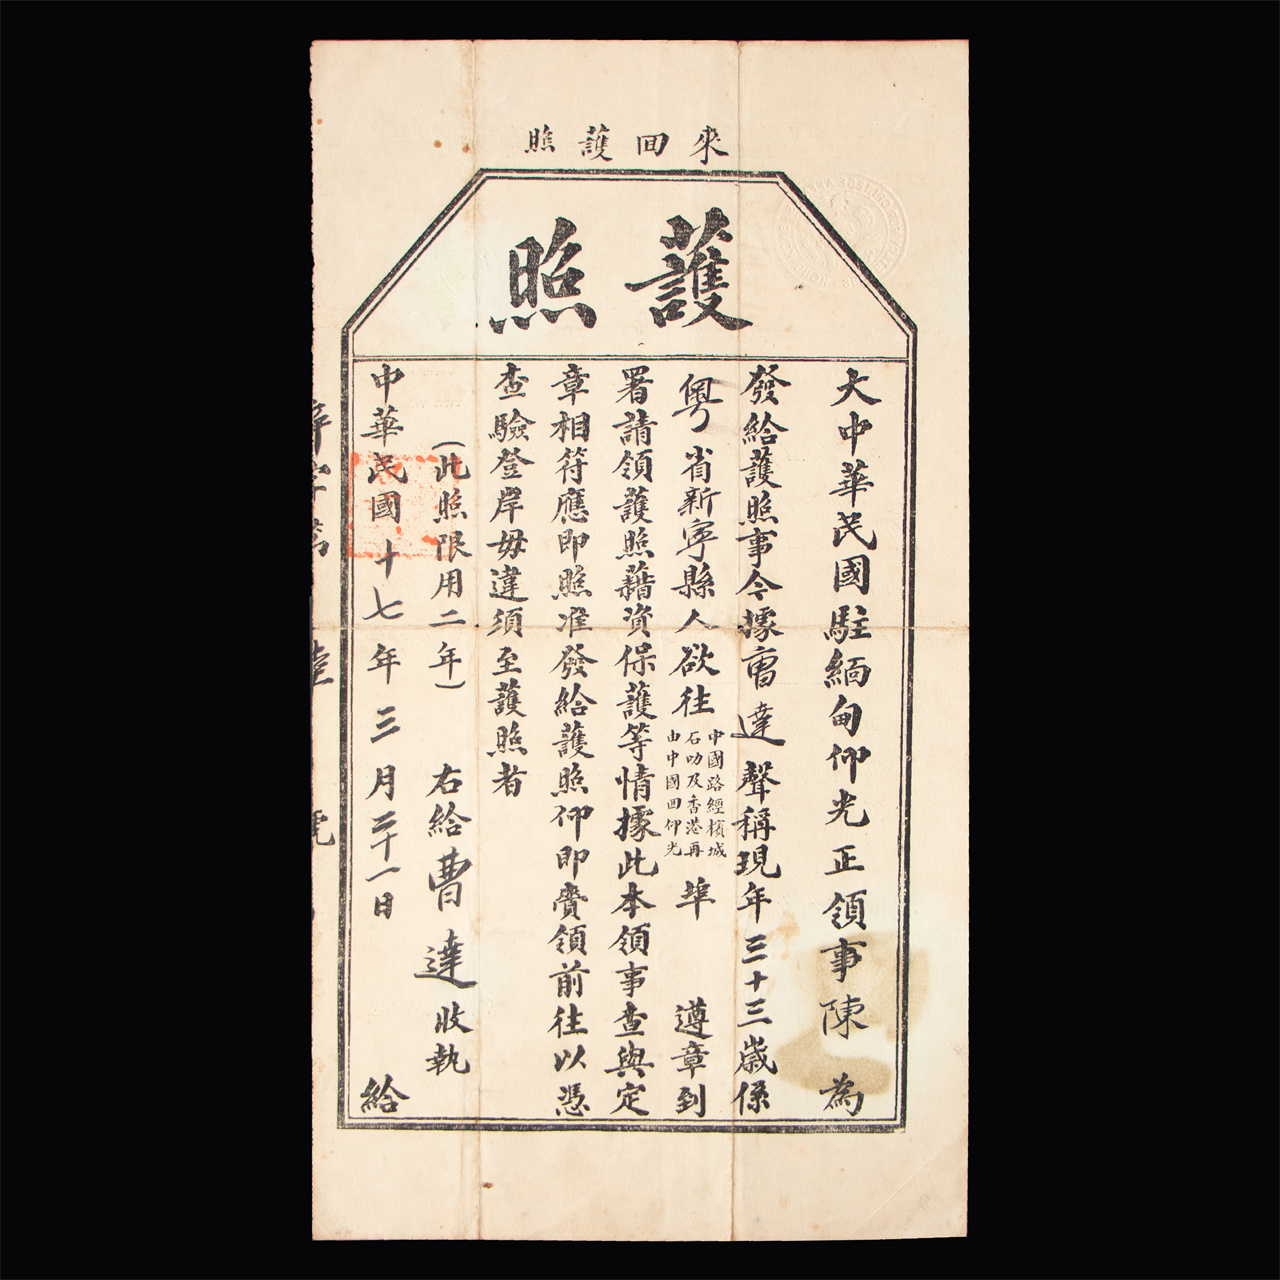 來回護照
護照
大中華民國駐緬甸仰光正領事陳 為
發給護照事今據曹達聲稱現年三十三歲係
粵省新寧縣人欲往中國路經檳城石叻及香港再由中國回仰光埠 遵章到
署請領護照藉資保護等情據此本領事查與定
章相符應即照准發給護照仰即賫領前往以憑
查驗登岸毋違須至護照者
(此照限用二年) 右給曹達收執
中華民國十七年三月二十一日 給
字第 號